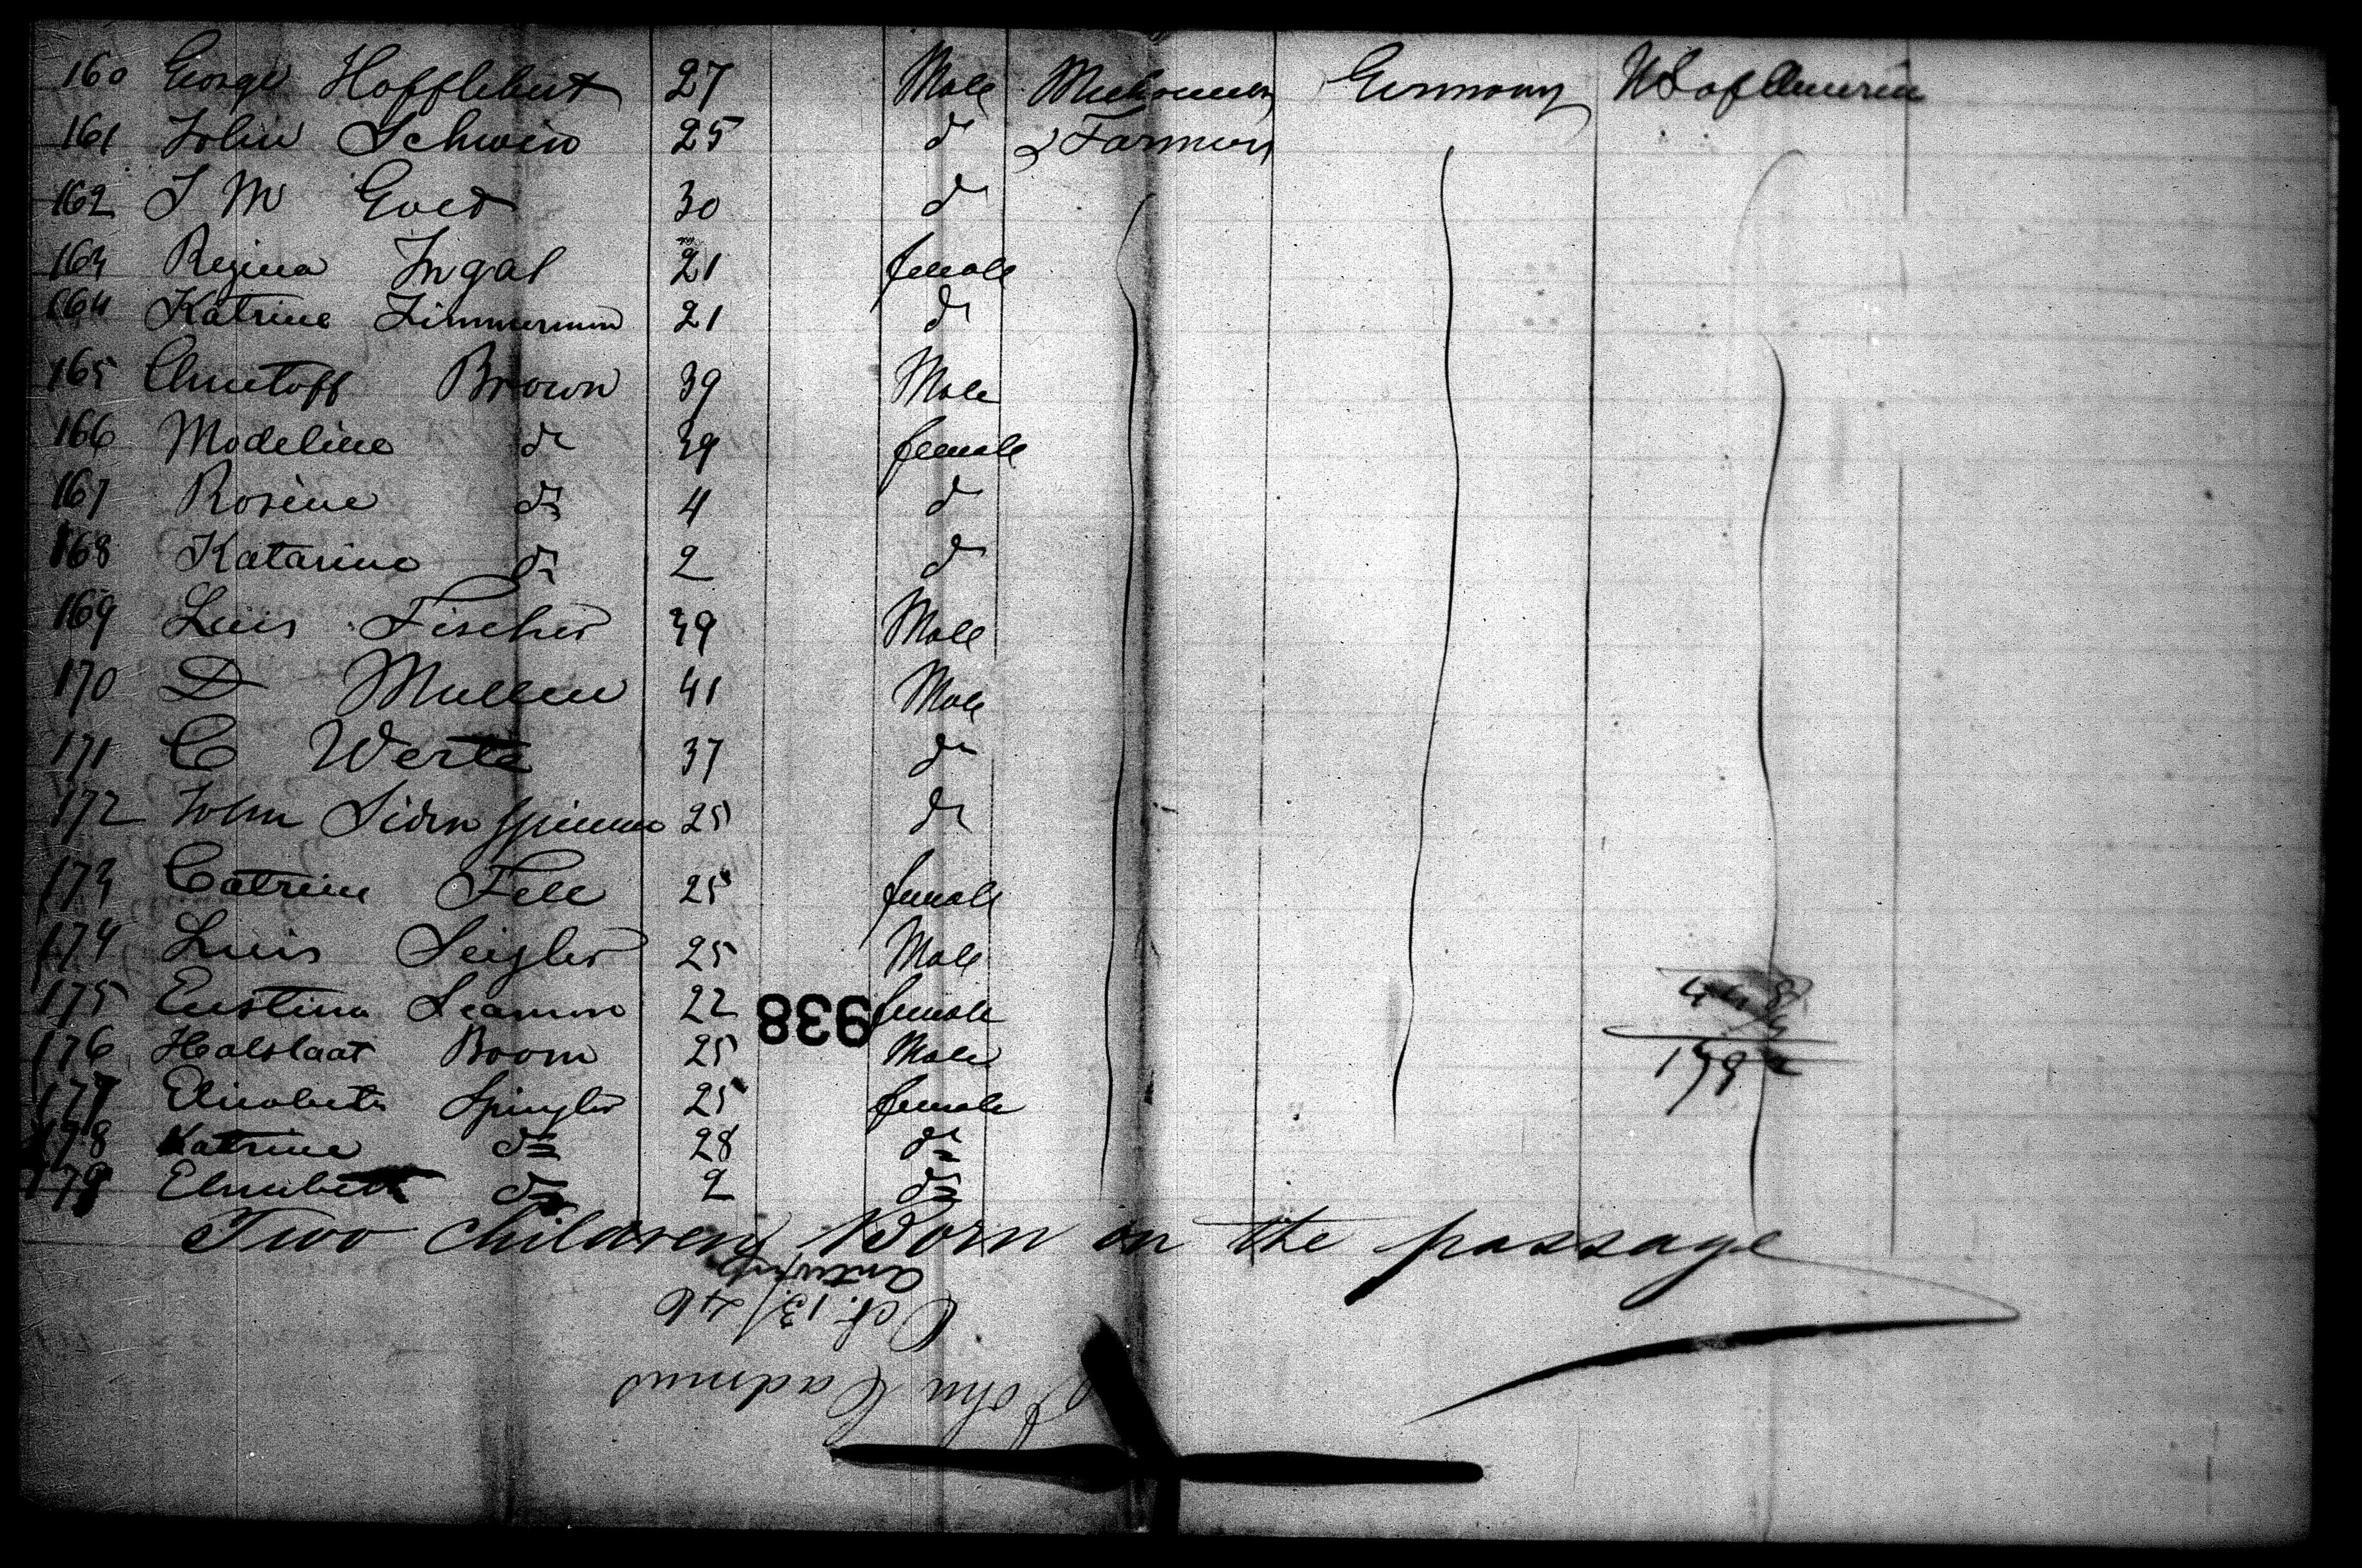 160 George Hofflebert 27 Male Mechanics Germany US of America
161 John Schwin 25 do & Farmers
162 J M Goed 30 do
163 Regina Ingal 21 female
164 Katrine Zimmermin 21 do
165 Christoff Brown 39 Male
166 Madeline do 39 female
167 Rosine do 4 do
168 Katarine do 2 do
169 Luis Fischer 39 Male
170 D Muller 41 Male
171 C Werte 37 do
172 John 25 do
173 Catrine Fell 25 female
174 Luis Seigler 25 Male
175 22 female
938
176 Boom 25 Male
177 Elisabeth Spingler 25 female
179
178 Katrine do 28 do
179 Elisabeth do 2 do
Two Children Born on the passage
Antwerp
Oct. 13/46
John Cadmus